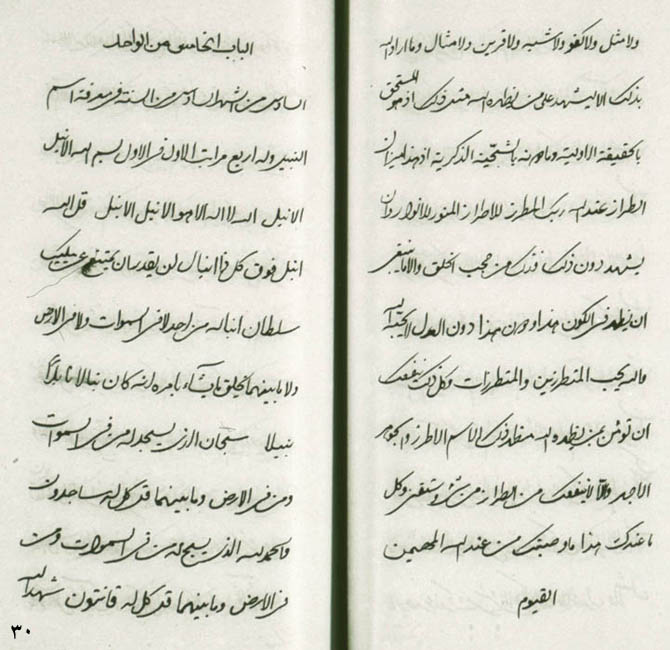 ولا مثل ولا كفو ولا شبيه ولا قرين ولا مثال وما اراد الله
بذلك الا ليشهد على من يظهره الله
بالحقيقة الاولية
الطراز عند الله ربك المطرز للاطراز المنور للانوار وان
يشهد دون ذلك فذلك من حجب الخلق والا ما ينبغي
ان يظهر في الكون هذا دون هذا دون العدل لا يحبه الله
والله يحب المتطرزين والمتطرزات وكل ذلك ينفعك
ان تؤمن بمن يظهره الله مظهر ذلك الاسم الاطرز والجوهر
والا لا ينفعك من الطراز من شيء وكل
ما عندك هذا ما وصيتك من عند الله المهيمن
القيوم
الباب الخامس من الواحد
السادس من الشهر السادس من السنة في معرفة اسم
النبيل وله اربع مراتب الاول في الاول بسم الله الانبل
الانبل الله لا اله الا هو الانبل الانبل قل الله
انبل فوق كل ذا انبال لن يقدر ان يمتنع عن مليك
سلطان انباله من احد لا في السموات ولا في الارض
ولا ما بينهما يخلق ما يشاء بامره انه كان نبالا نابلا
نبيلا سبحان الذي يسجد له من في السموات
ومن في الارض وما بينهما قل كل له ساجدون
والحمد لله الذي يسبح له من في السموات ومن
في الارض وما بينهما قل كل له قانتون شهد الله
٣٠